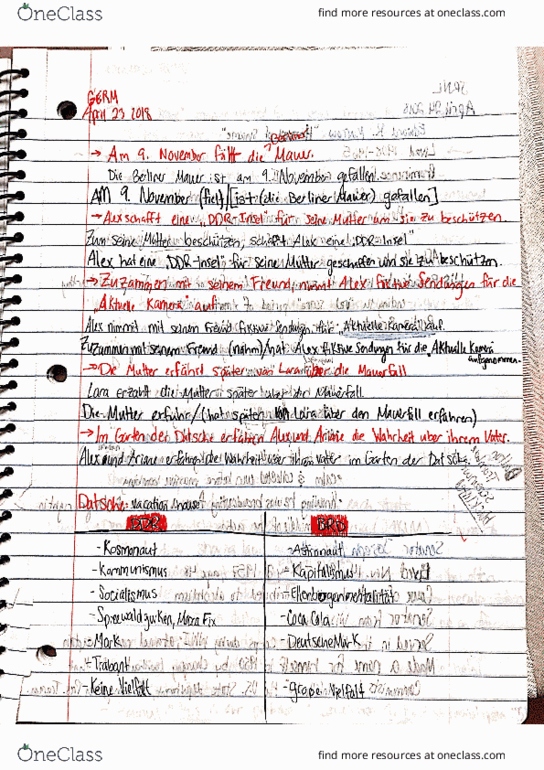 OneClass
find more resources at oneclass.com
GERM
April 23 2018
→ Am 9. November fällt die Mauer.
Die Berliner Mauer ist am 9. November gefallen.
AM 9. November (fiel) [ist (die Berliner Mauer) gefallen]
→ Alex schafft eine „DDR-Insel" für seine Mutter um sie zu beschützen.
Zum seine Mutter beschützen, schafft Alex eine „DDR-Insel"
Alex hat eine „DDR-Insel" für seine Mutter geschaffen um sie zu beschützen.
→ Zuzammen mit seinem Freund, nimmt Alex fiktive Sendungen für die
„Aktuelle Kamera" auf.
Alex nimmt mit seinem Freund fiktive Sendungen Aktuelle Kamera auf.
Zuzammen mit seinem Freund (nahm)/hat Alex fiktive Sendungen für die „Aktuelle Kamera
aufgenommen.
→ Die Mutter erfährt später von Lara über die Mauerfall
Lara erzahlt die Mutter später über Mauerfall.
Die Mutter erfuhr/(hat später von Lara über den Mauerfall erfahren)
→ Im Garten der Datsche erfahren Alex und Ariane die Wahrheit über ihrem Vater.
Alex und Ariane erfahren die Wahrheit über ihren Vater im Garten der Datsche.
Datsche: vacation house
DDR BRD
- Kosmonaut - Astronaut
- Kommunismus - Kapitalismus
- Socialismus - Ellenbogenmentalität
- Spreewaldgurken, Moca Fix - Coca Cola
- Mark - Deutsche Mark
- Trabant
- Keine Vielfalt - große Vielfalt
OneClass
find more resources at oneclass.com